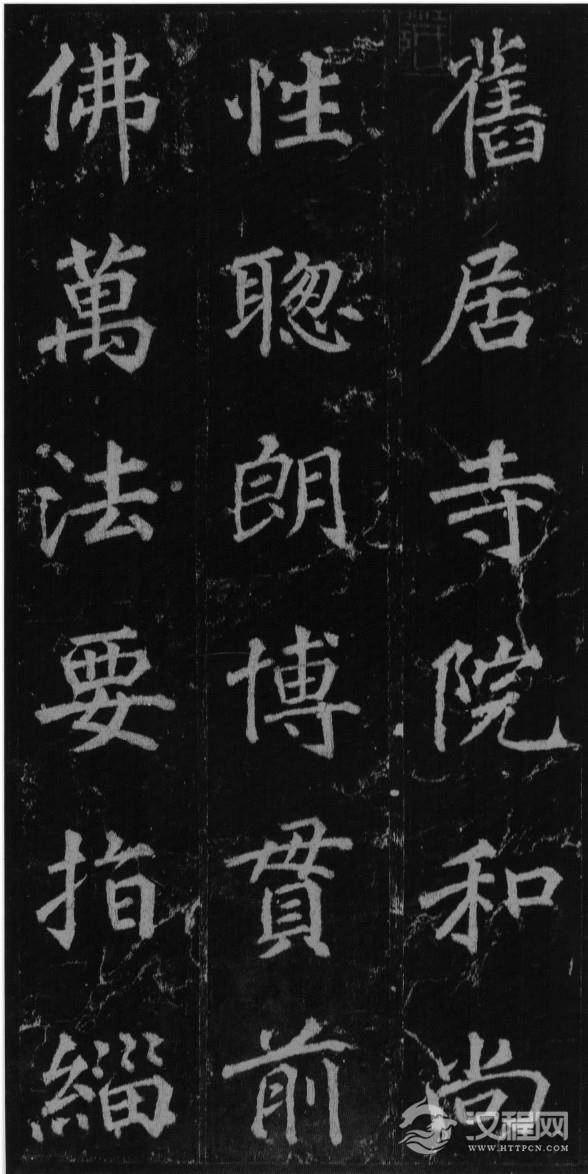 舊居寺院和尚
性聦朗博貫前
佛萬法要指緇
汉程网
WWW.HTTPCN.COM